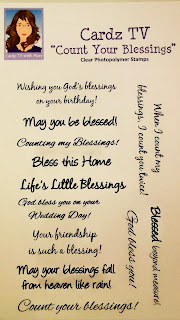 Cardz TV
"Count Your Blessings"
Clear Photopolymer Stamps
Cardz TV With Mary
Wishing you God's blessings
on your birthday!
May you be blessed!
Counting my Blessings!
Bless this Home
Life's Little Blessings
God bless you on your
Wedding Day!
Your friendship
is such a blessing!
May your blessings fall
from heaven like rain!
Count your blessings!
When I count my
blessings, I count you twice!
Blessed beyond measure!
God bless you!